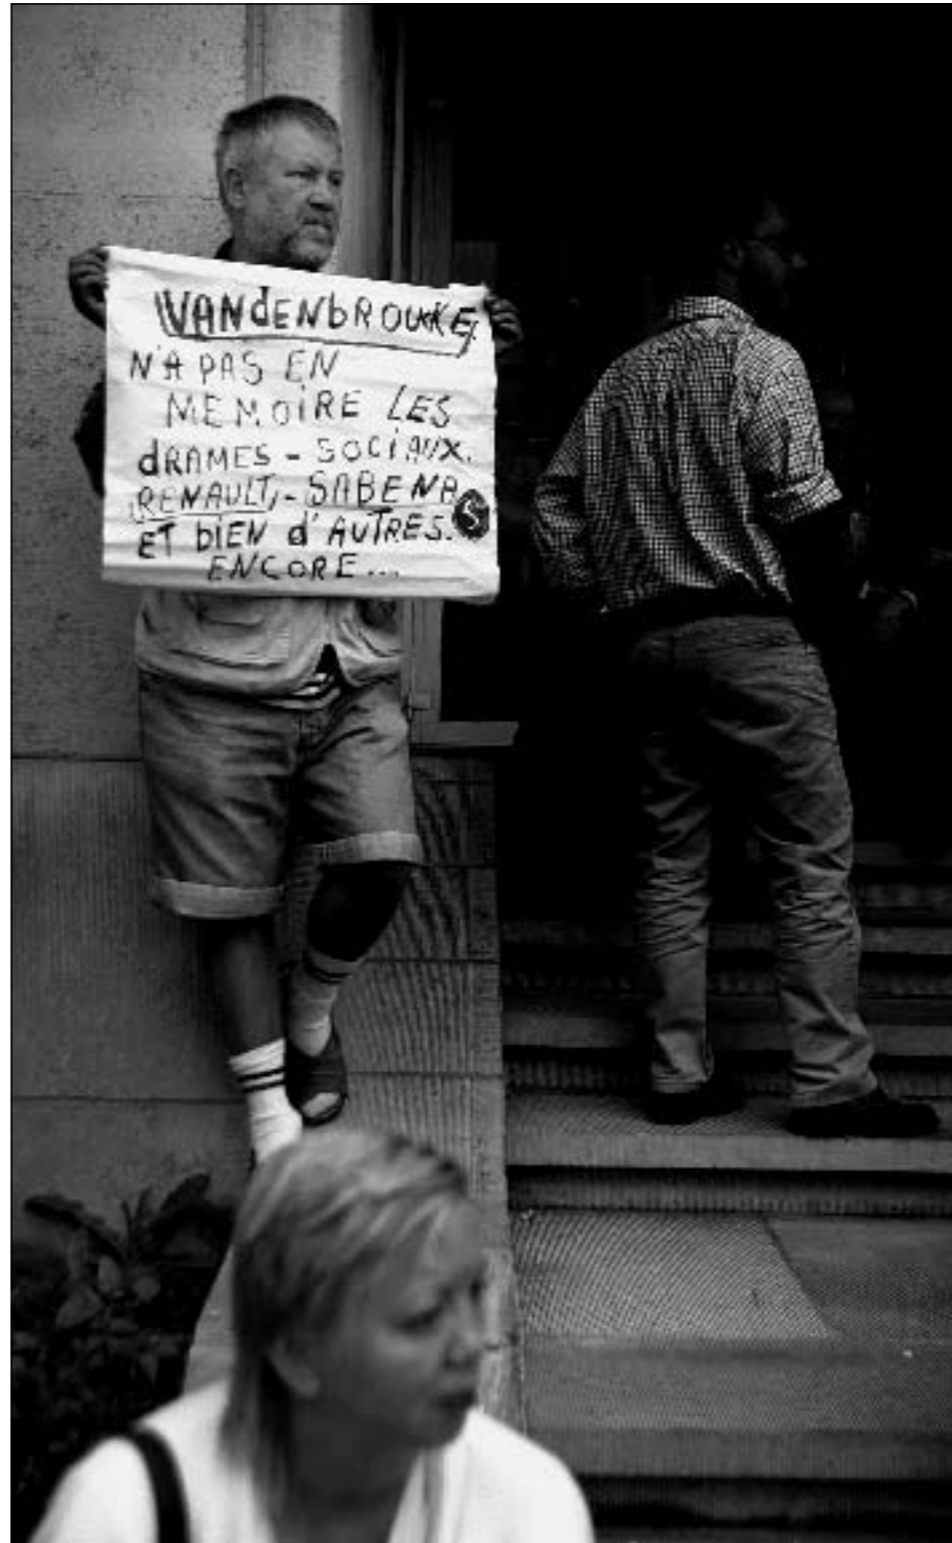 VANdENbROUCKE,
N'A PAS EN
MEMOIRE LES
dRAMES - SOCIAUX.
RENAULT, - SABENA
ET bIEN d'AUTRES.
ENCORE...